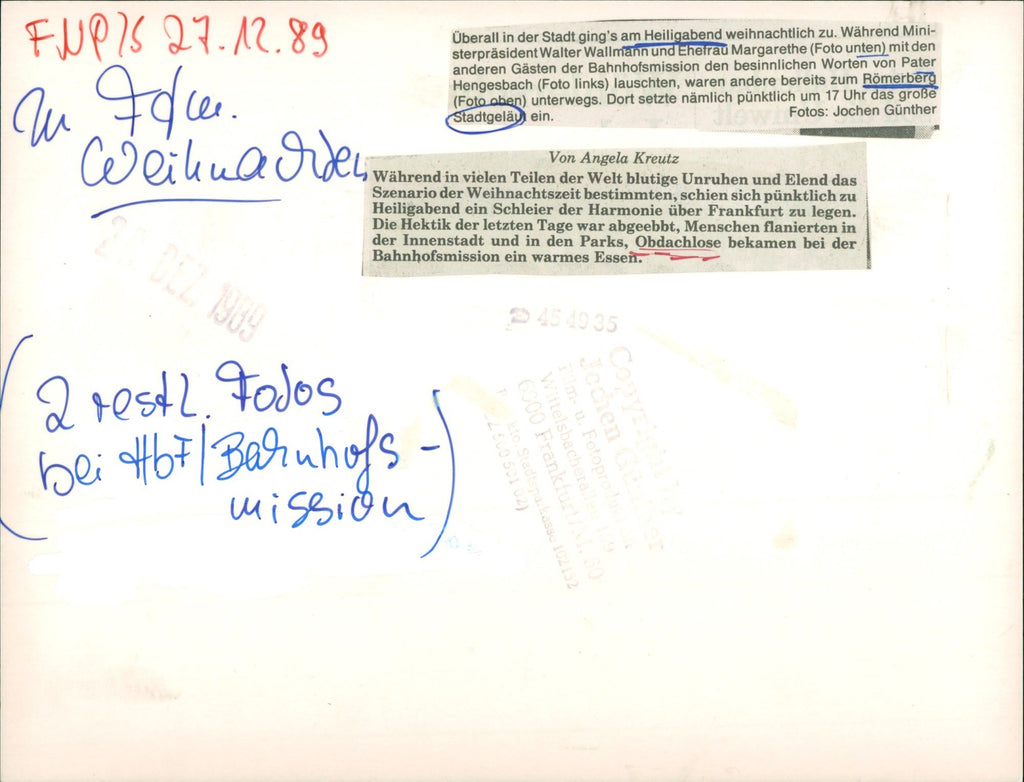 FNP/S 27.12.89
Überall in der Stadt ging's am Heiligabend weihnachtlich zu. Während Mini-
sterpräsident Walter Wallmann und Ehefrau Margarethe (Foto unten) mit den
anderen Gästen der Bahnhofsmission den besinnlichen Worten von Pater
Hengesbach (Foto links) lauschten, waren andere bereits zum Römerberg
(Foto oben) unterwegs. Dort setzte nämlich pünktlich um 17 Uhr das große
Stadtgeläut ein.
Fotos: Jochen Günther
Weihnachten
Von Angela Kreutz
Während in vielen Teilen der Welt blutige Unruhen und Elend das
Szenario der Weihnachtszeit bestimmten, schien sich pünktlich zu
Heiligabend ein Schleier der Harmonie über Frankfurt zu legen.
Die Hektik der letzten Tage war abgeebbt, Menschen flanierten in
der Innenstadt und in den Parks, Obdachlose bekamen bei der
Bahnhofsmission ein warmes Essen.
DEZ. 1989
454935
(2 restl. Fotos
bei Hbf/Bahnhofs-
mission)
Copyright
Jochen Günther
Film- u. Fotoproduktion
Wittelsbacherallee
6000 Frankfurt/M. 60